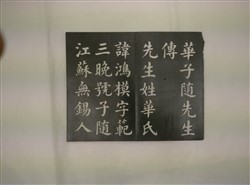 華子随先生
傳
先生姓華氏
諱鴻模字範
三晚號子随
江蘇無錫人